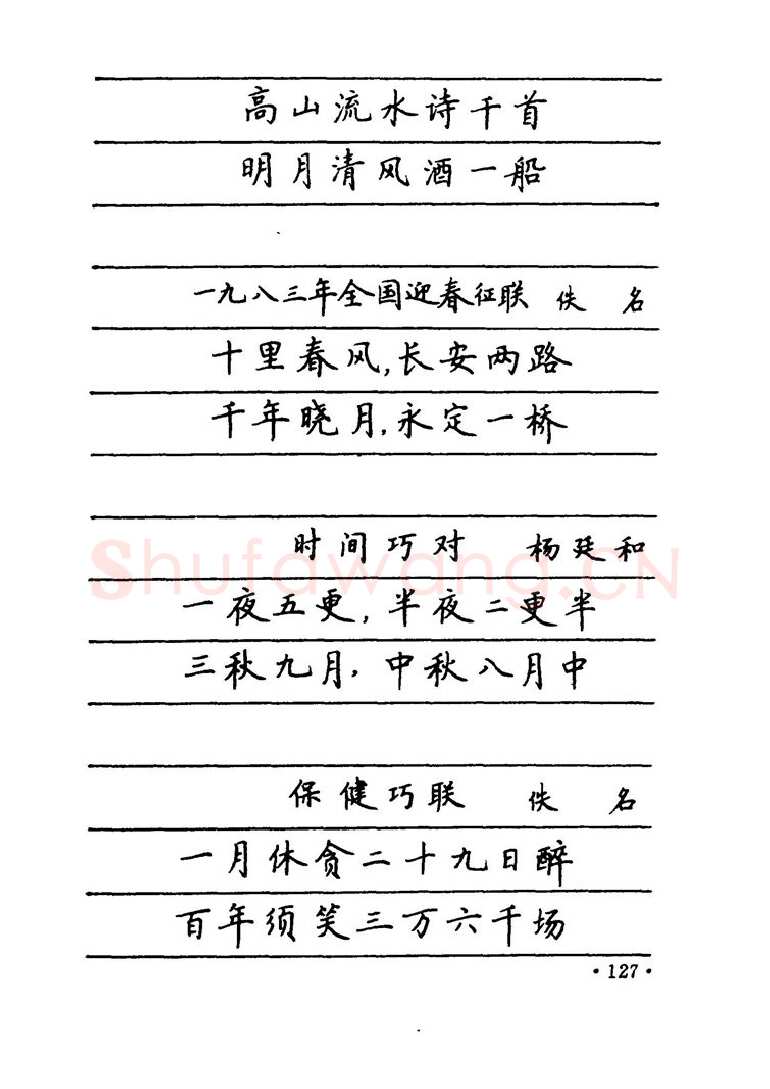 高山流水诗千首
明月清风酒一船
一九八三年全国迎春征联 佚 名
十里春风,长安两路
千年晓月,永定一桥
时间巧对 杨廷和
shufawang.CN
一夜五更,半夜二更半
三秋九月,中秋八月中
保健巧联 佚 名
一月休贪二十九日醉
百年须笑三万六千场
·127·